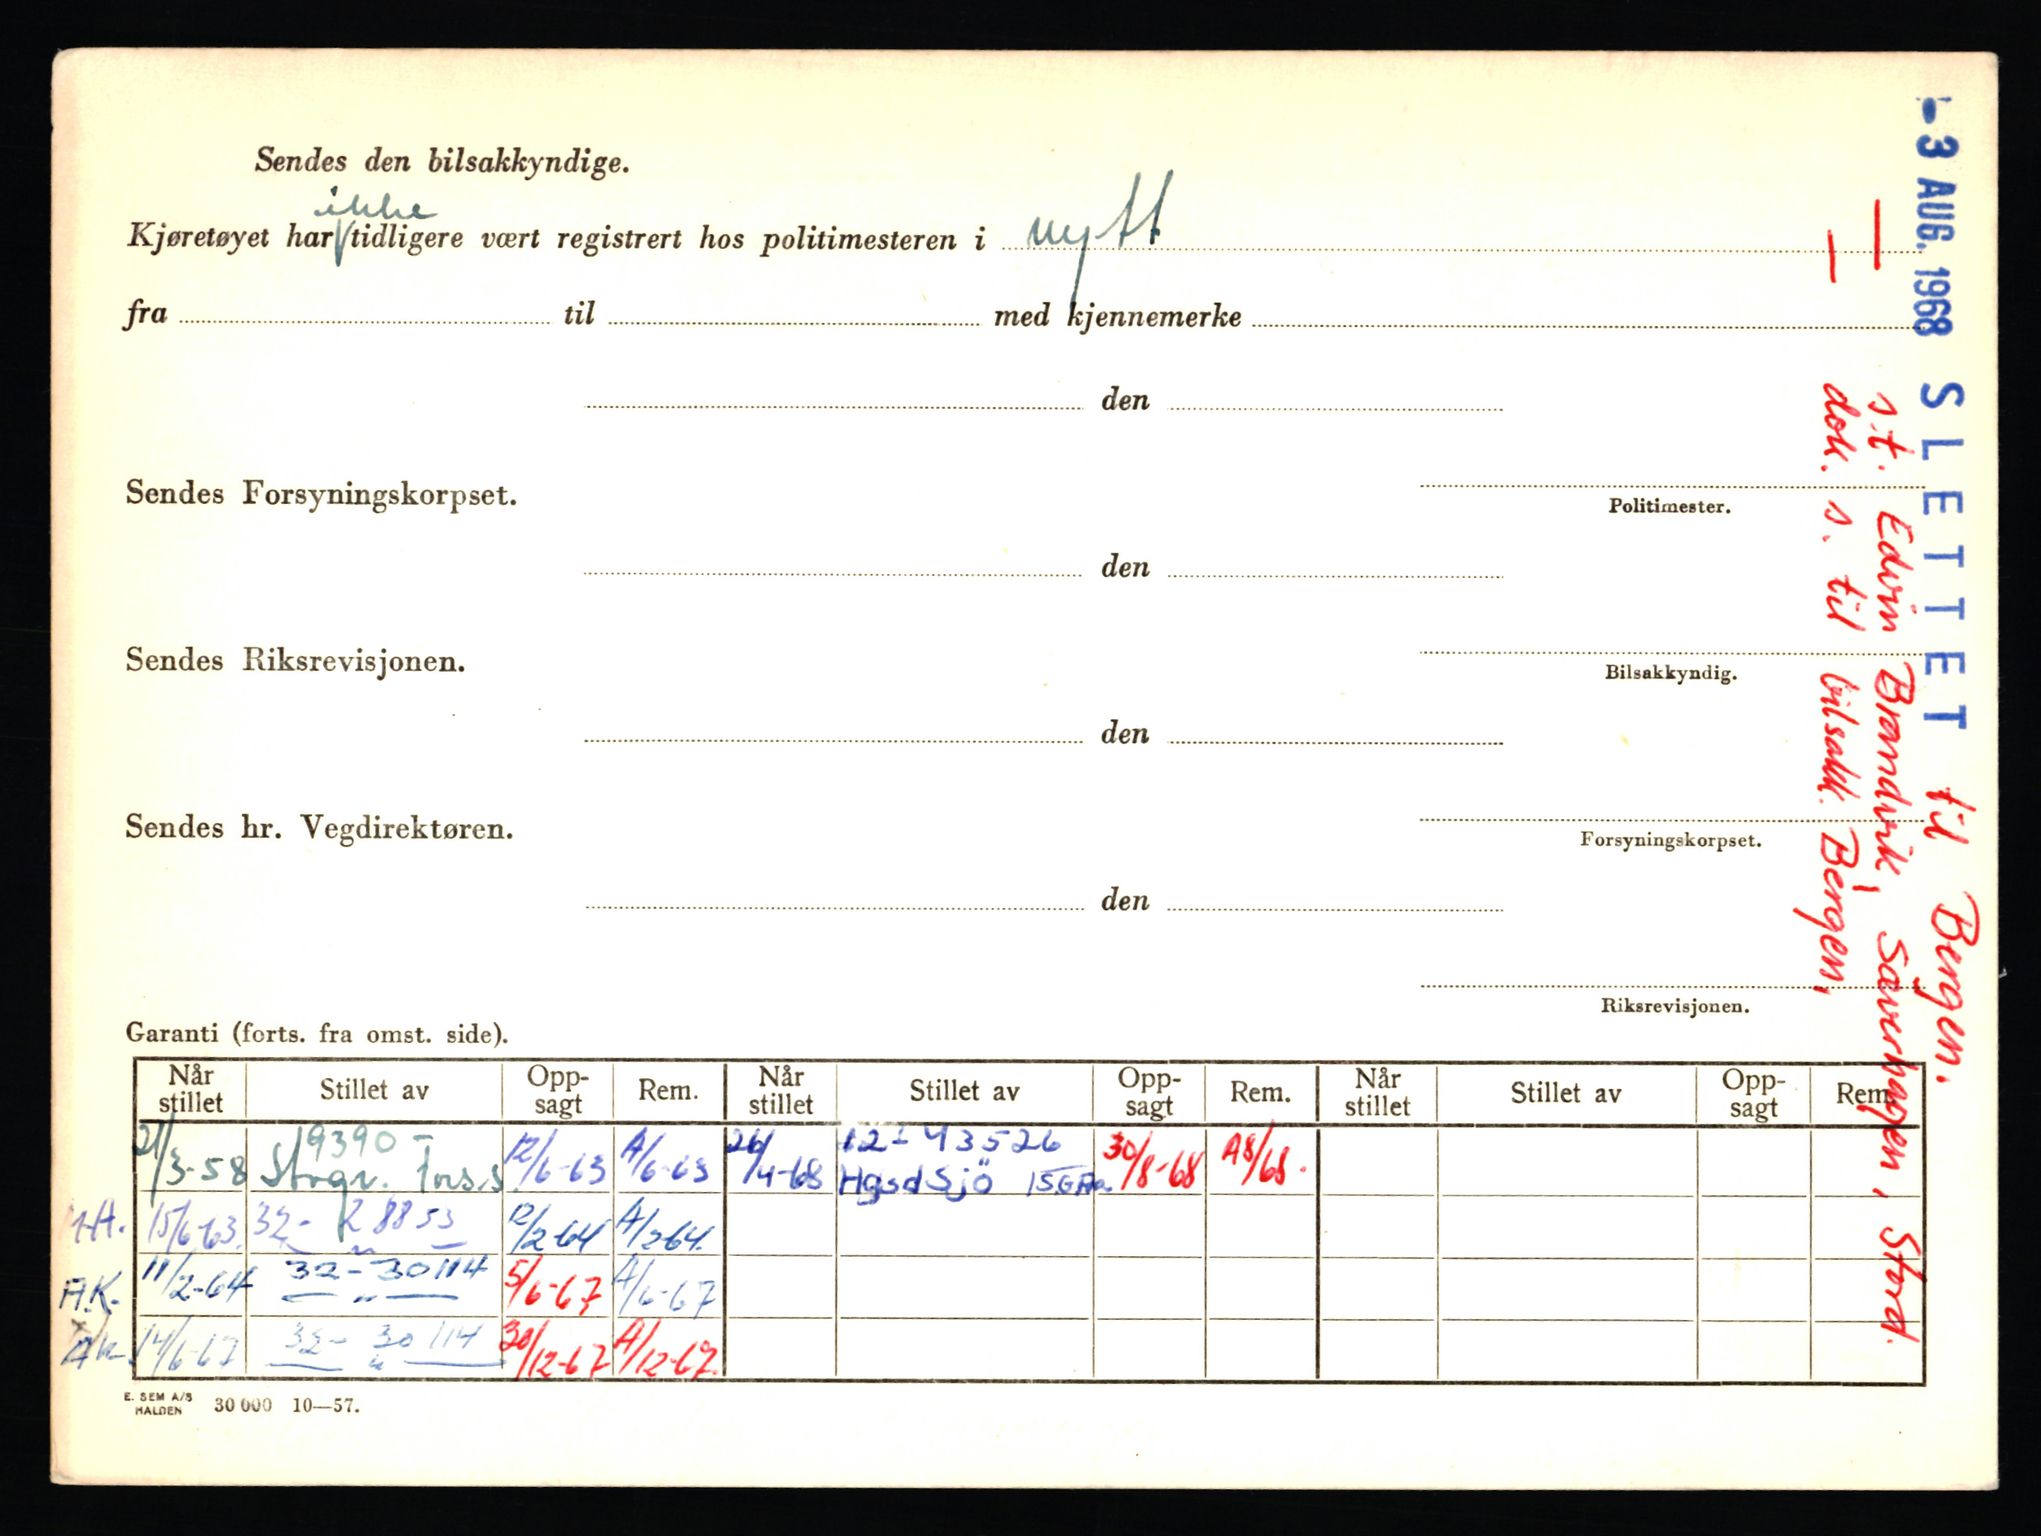 Sendes den bilsakkyndige.
ikke
Kjøretøyet har tidligere vært registrert hos politimesteren i nytt
fra til med kjennemerke
den
Sendes Forsyningskorpset.
Politimester.
den
Sendes Riksrevisjonen.
Bilsakkyndig.
den
Sendes hr. Vegdirektøren.
Forsyningskorpset.
den
Riksrevisjonen.
- 3 AUG. 1968 SLETTET til Bergen.
— s.t. Edvin Brandvik, Sæverhagen, Stord.
— dok. s. til bilsakk. Bergen,
Garanti (forts. fra omst. side).
Når stillet Stillet av Opp-sagt Rem. Når stillet Stillet av Opp-sagt Rem. Når stillet Stillet av Opp-sagt Rem.
21/3-58 19390 - Storgr. Fors.s. 12/6-63 A/6-63 26/4-68 12-43526 Hgsd Sjö 30/8-68 A8/68.
15/6-63. 32- 28853 12/2-64 A/2-64.
A.K. 11/2-64 32-30114 — " — 5/6-67 A/6-67
14/6-67 32- 30114 — " — 30/12-67 A/12-67.
E. SEM A/S
HALDEN 30 000 10—57.